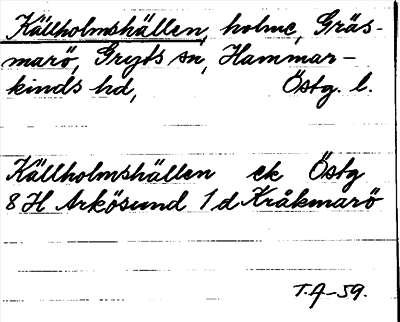 Källholmshällen, holme, Gräs-
marö, Gryts sn, Hammar-
kinds hd, Östg. l.
Källholmshällen ek Östg
8H Arkösund 1d Kråkmarö
T.A-59.